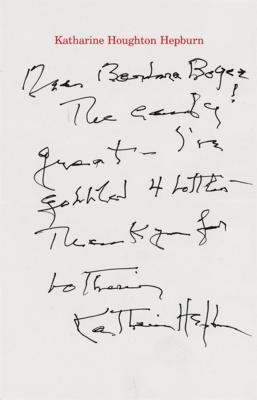 Katharine Houghton Hepburn
Dear Barbara Bogez
The candy!
great - I've
gobbled 4 bottles -
Thank you for
bothering
Katharine Hepburn